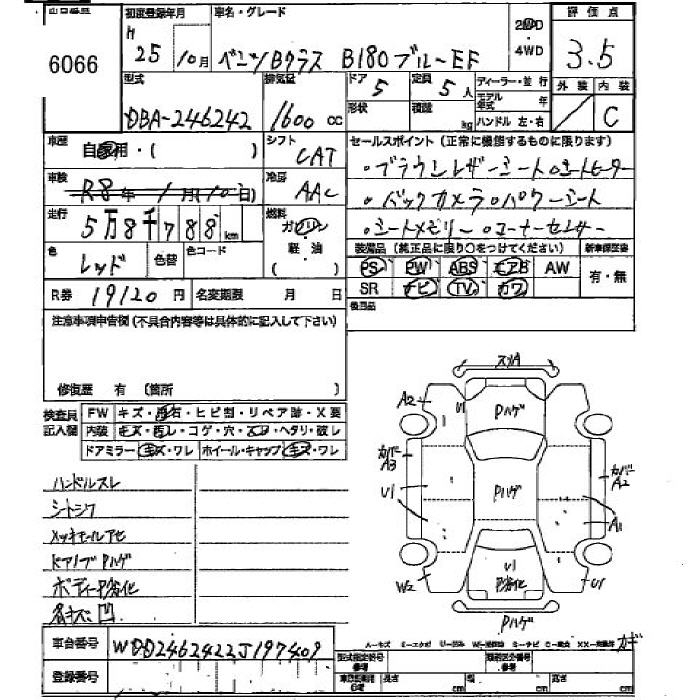 6066
初度登録年月
H 25 10月
車名・グレード
ベンツBクラス B180ブルーEF
2WD・4WD
評価点
3.5
外装 内装
C
型式
DBA-246242
排気量
1600 cc
ドア 5
形状
定員 5人
積載 kg
ディーラー・並行
モデル年式 年
ハンドル 左・右
車歴
自家用・( )
シフト
CAT
車検
R8年1月10日
冷房
AAC
走行
5万8千788km
燃料
ガソリン
軽・油
( )
色
レッド
色替
色コード
R券 19120円
名変期限 月 日
セールスポイント(正常に機能するものに限ります)
・ブラウンレザーシート・シートヒーター
・バックカメラ・パワーシート
・シートメモリー・コーナーセンサー
装備品(純正品に限り○をつけてください)
新車保証書
PS PW ABS エアB AW
SR ナビ TV カワ
有・無
後日品
注意事項申告欄(不具合内容等は具体的に記入して下さい)
修復歴 有(箇所 )
検査員記入欄
FW キズ・飛石・ヒビ割・リペア跡・X要
内装 キズ・汚レ・コゲ・穴・スレ・ヘタリ・破レ
ドアミラー キズ・ワレ ホイール・キャップ キズ・ワレ
ハンドルスレ
シートシワ
メッキモールアセ
ドアノブPハゲ
ボディー劣化
各キズ凹
スリA
A2
U1
Pハゲ
カバーA3
カバーA2
U1
Pハゲ
A1
W2
U1
劣化
U1
Pハゲ
車台番号
WDD2462422J197409
登録番号
型式指定番号
類別区分番号
長さ cm 幅 cm 高さ cm